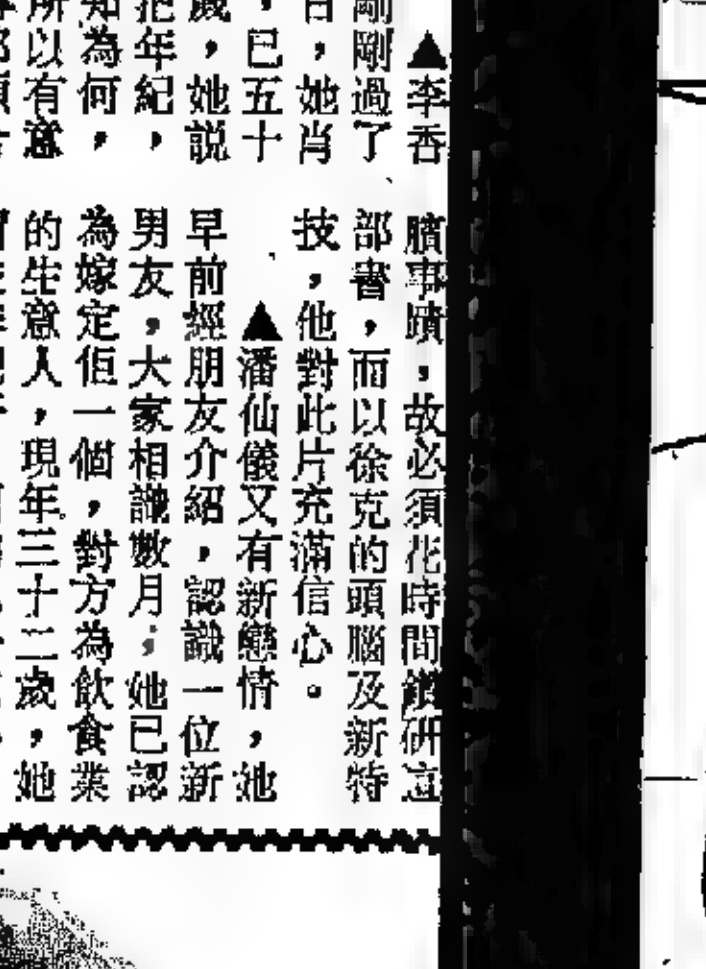 ▲李香
剛剛過了
日，她肖
，已五十
歲，她説
把年紀，
知為何，
所以有意
臏事蹟，故必須花時間鑽研這
部書，而以徐克的頭腦及新特
技，他對此片充滿信心。
▲潘仙儀又有新戀情，她
早前經朋友介紹，認識一位新
男友，大家相識數月，她已認
為嫁定佢一個，對方為飲食業
的生意人，現年三十二歲，她